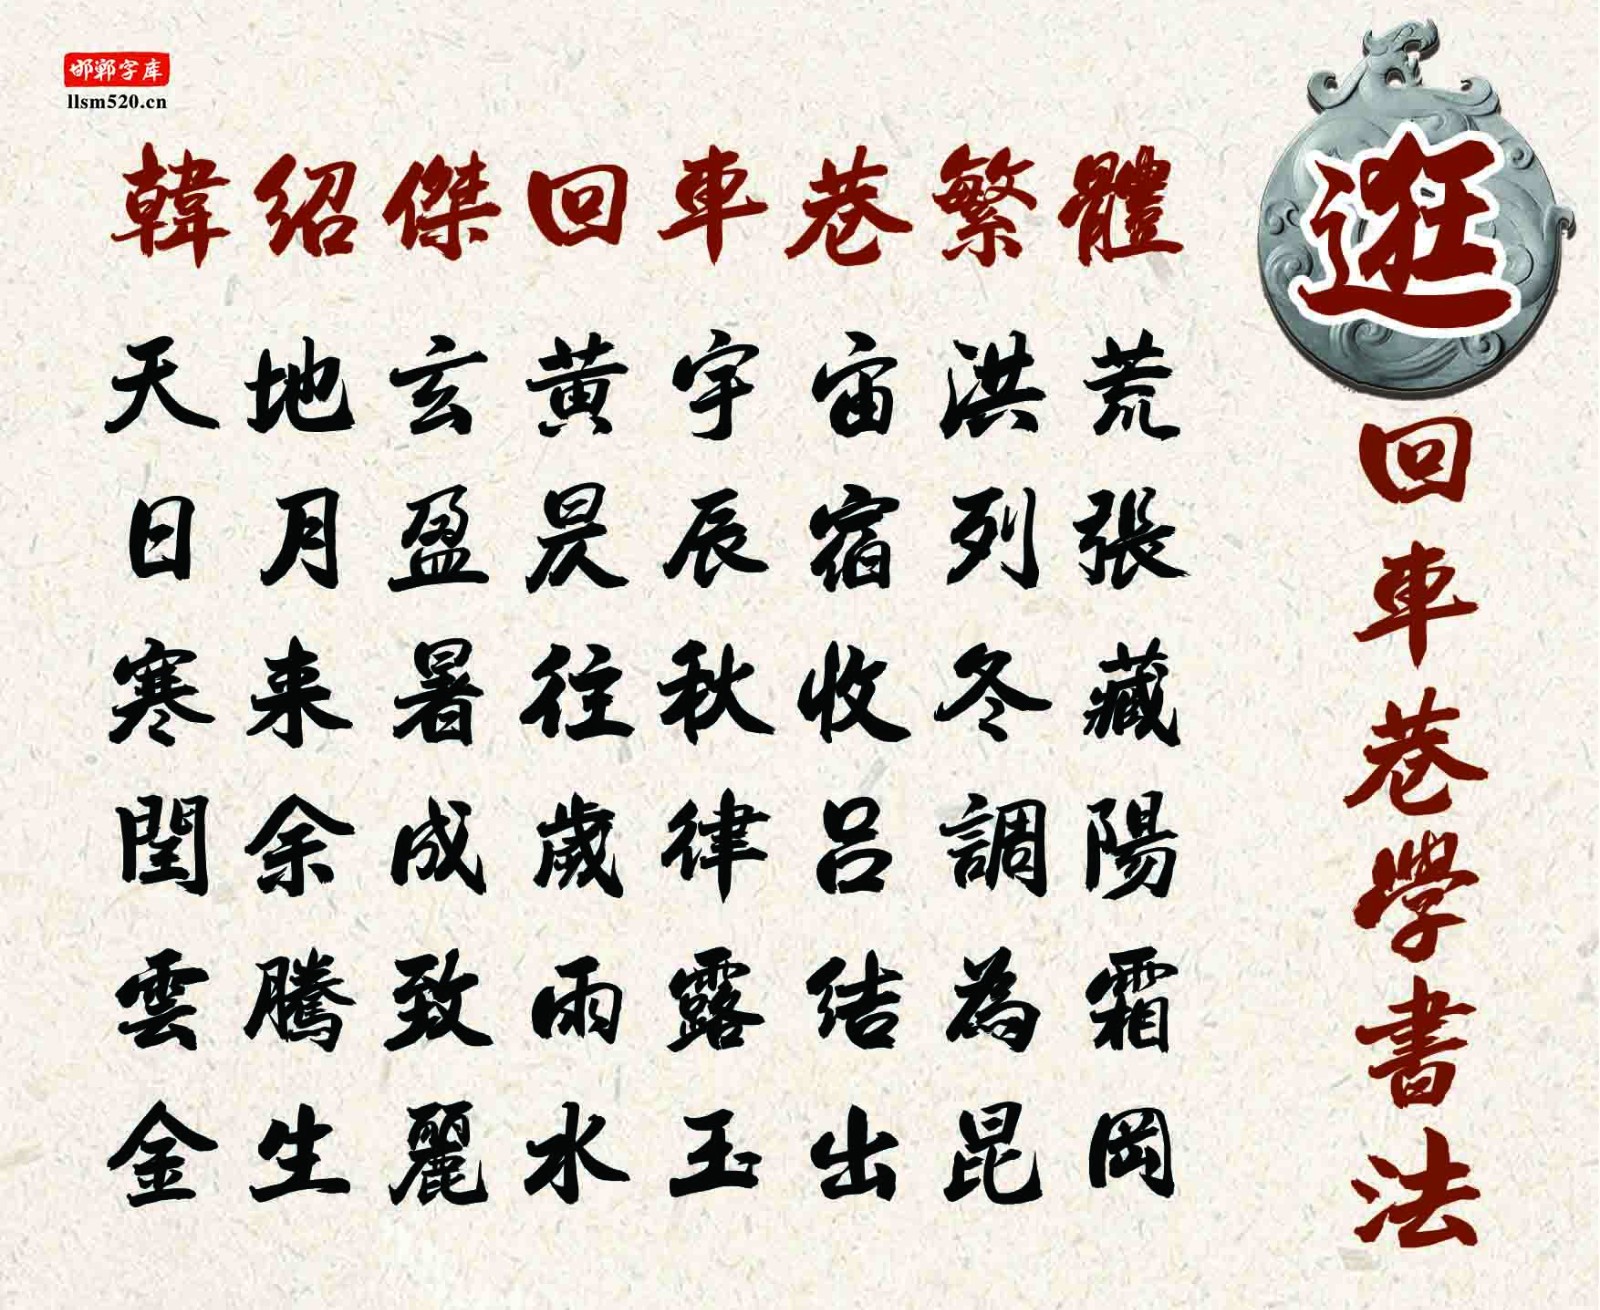 邯郸字库
llsm520.cn
韓紹傑回車巷繁體
天地玄黃宇宙洪荒
日月盈昃辰宿列張
寒来暑往秋收冬藏
閏余成歲律吕調陽
雲騰致雨露結為霜
金生麗水玉出昆岡
逛
回車巷學書法